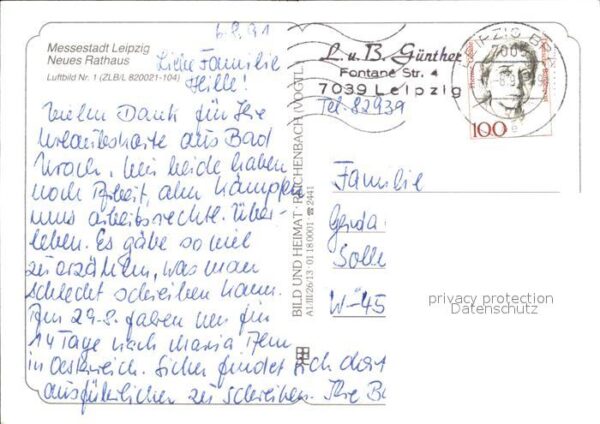 6.8.91
Messestadt Leipzig
Neues Rathaus
Luftbild Nr. 1 (ZLB/L 820021-104)
Liebe Familie
Heille!
Vielen Dank für Ihre
Urlaubskarte aus Bad
Urach. Wir beide haben
noch Arbeit, aber kämpfen
ums arbeitsrechtl. Über-
leben. Es gäbe so viel
zu erzählen, was man
schlecht schreiben kann.
Am 29.8. fahren wir für
14 Tage nach Maria Alm
in Österreich. Sicher findet sich dort
ausführlicher zu schreiben. Ihre
BILD UND HEIMAT · REICHENBACH (VOGTL.)
A1/III/26/13 · 01 18 0001 · ☎ 2441
L. u. B. Günther
Fontane Str. 4
7039 Leipzig
Tel. 82939
LEIPZIG
100
Familie
Gerda
Solle
W-45
privacy protection
Datenschutz